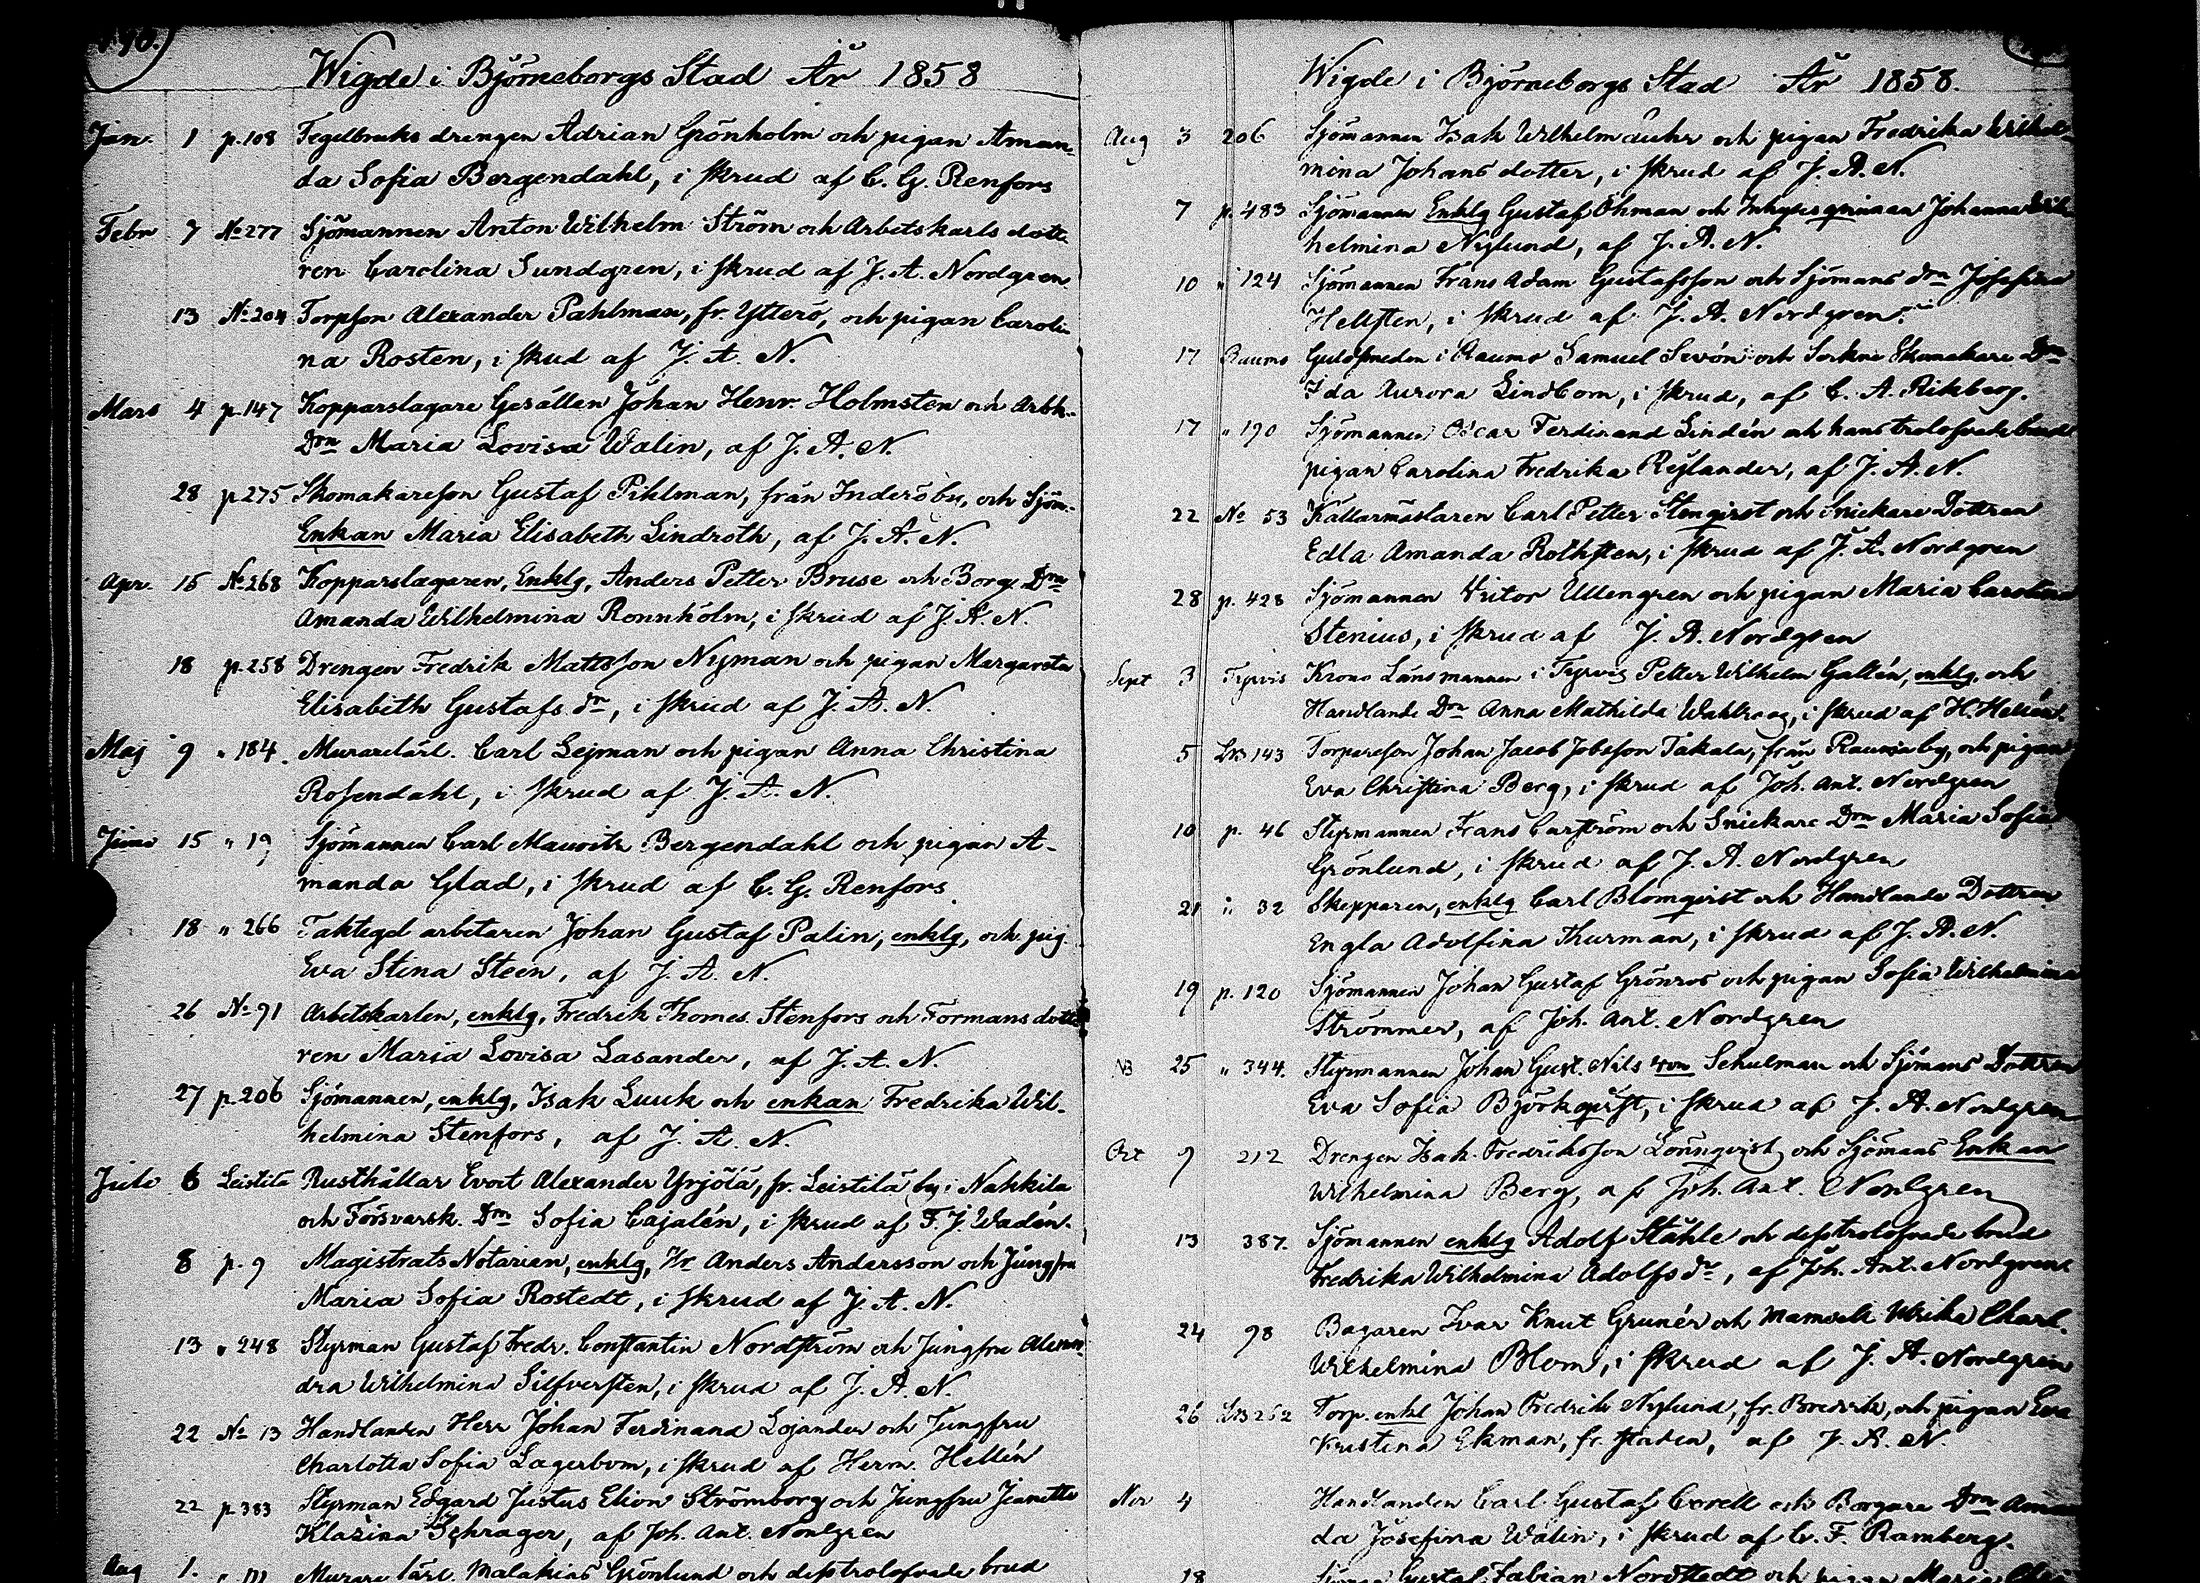 Wigde i Björneborgs Stad År 1858
Jan. 1 p.108 Tegelbruks drengen Adrian Grönholm och pigan Aman-
da Sofia Bergendahl, i skrud af C. G. Renfors
Febr 7 No 277 Sjömannen Anton Wilhelm Ström och Arbetskarls dott-
ren Carolina Sundgren, i skrud af J. A. Nordgren
13 No 204 Torpson Alexander Pahlman, fr. Ytterö, och pigan Caroli-
na Rosten, i skud af J. A. N.
Mars 4 p.147 Kopparslagare Gesällen Johan Henr. Holmsten och Arbk.
Drn Maria Lovisa Walin, af J. A. N.
28 p 275 Skomakareson Gustaf Pihlman, från Inderöby, och Sjöm.
Enkan Maria Elisabeth Lindroth, af J. A. N.
Apr. 15 No 268 Kopparslagaren, Enklg, Anders Petter Bruse och Borg. Drn
Amanda Wilhelmina Rönnholm, i skrud af J. A. N.
18 p.258 Drengen Fredrik Mattsson Nyman och pigan Margareta
Elisabeth Gustafs dr, i skrud af J. A. N.
Maj 9 " 184. Murarelärl. Carl Lejman och pigan Anna Christina
Rosendahl, i skrud af J. A. N.
Juni 15 " 19 Sjömannen Carl Mauritz Bergendahl och pigan A-
manda Glad, i skrud af C. G. Renfors
18 " 266 Taktegel arbetaren Johan Gustaf Palin, enklg, och pig.
Eva Stina Steen, af J. A. N.
26 No 91 Arbetskarlen, enklg, Fredrik Thomes. Stenfors och Formans dott-
ren Maria Lovisa Lasander, af J. A. N.
27 p.206 Sjömannen, enklg, Isak Luuk och enkan Fredrika Wil-
helmina Stenfors, af J. A. N.
Juli 6 Leistilä Rusthållar Evert Alexander Yrjölä, fr. Leistilä by i Nakkila
och Försvarsk. Drn Sofia Cajalén, i skrud af F. J. Wadén.
8 p. 9 Magistrats Notarien, enklg, Hr Anders Andersson och Jungfru
Maria Sofia Rostedt, i skrud af J. A. N.
13 " 248 Styrman Gustaf Fredr. Constantin Nordström och Jungfru Alexan-
dra Wilhelmina Silfversten, i skrud af J. A. N.
22 No 13 Handlanden Herr Johan Ferdinand Lojander och Jungfru
Charlotta Sofia Lagerbom, i skrud af Herm. Hellén
22 p 383 Styrman Edgard Justus Elion Strömborg och Jungfru Jeanette
Klasina Schrager, af Joh. Ant. Nordgren
Aug 1. Murare lärl. Malakias Grönlund och desstrolofvade brud
Wigde i Björneborgs Stad År 1858.
Aug 3 206 Sjömannen Isak Wilhelm och pigan Fredrika Wilhel-
mina Johans dotter, i skrud af J. A. N.
7 p. 483 Sjömannen Enklg Gustaf Öhman och Inhyses qvinnan Johanna Wil-
helmina Nylund, af J. A. N.
10 " 124 Sjömannen Frans Adam Gustafsson och Sjömans drn Josefina
Hellsten, i skrud af J. A. Nordgren.
17 Raumo Guldsmeden i Raumo Samuel Sevón och Sockne Skomakare Drn
Ida Aurora Lindbom, i skrud, af C. A. Rikberg.
17 " 190 Sjömannen Oscar Ferdinand Lindén och hans trolofvade brud
pigan Carolina Fredrika Reylander, af J. A. N.
22 No 53 Källarmästaren Carl Petter Stenqvist och Snickare Dottren
Edla Amanda Rothsten, i skrud af J. A. Nordgren
28 p. 428 Sjömannen Victor Ullengren och pigan Maria Carolina
Stenius, i skrud af J. A. Nordgren
Sept 3 Tyrvis Krono Länsmannen i Tyrvis Petter Wilhelm Gallén, enklg, och
Handlande Drn Anna Mathilda Wahlroos, i skrud af H. Hellén.
5 LB 143 Torpareson Johan Jacob Jobsson Takala, från Raumo by, och pigan
Eva Christina Berg, i skrud af Joh. Ant. Nordgren
10 p. 46 Styrmannen Frans Carström och Snickare Drn Maria Sofia
Grönlund, i skrud af J. A. Nordgren
21 " 32 Skepparen, enklg Carl Blomqvist och Handlande Dottren
Engla Adolfina Thurman, i skrud af J. A. N.
19 p. 120 Sjömannen Johan Gustaf Grönros och pigan Sofia Wilhelmina
Strömmer, af Joh. Ant. Nordgren
NB 25 " 344. Styrmannen Johan Gust. Nils von Schulman och Sjömans Dottren
Eva Sofia Björkqvist, i skrud af J. A. Nordgren
Oct 9 212 Drengen Isak Fredriksson Lönnqvist och Sjömans Enkan
Wilhelmina Berg, af Joh. Ant. Nordgren
13 387. Sjömannen enklg Adolf Ståhle och desstrolofvade brud
Fredrika Wilhelmina Adolfs dr, af Joh. Ant. Nordgren
24 98 Bagaren Ivar Knut Grunér och Mamsell Ulrika Charl.
Wilhelmina Blom, i skrud af J. A. Nordgren
26 LB 262 Torp. enkl Johan Fredrik Nylund, fr. Bredvik, och pigan Eva
Kristina Ekman, fr. staden, af J. A. N.
Nov 4 Handlanden Carl Gustaf Corell och Borgare Drn Aman-
da Josefina Walin, i skrud af C. F. Ramberg.
18 Gustaf Fabian Nordstedt och pigan Maria